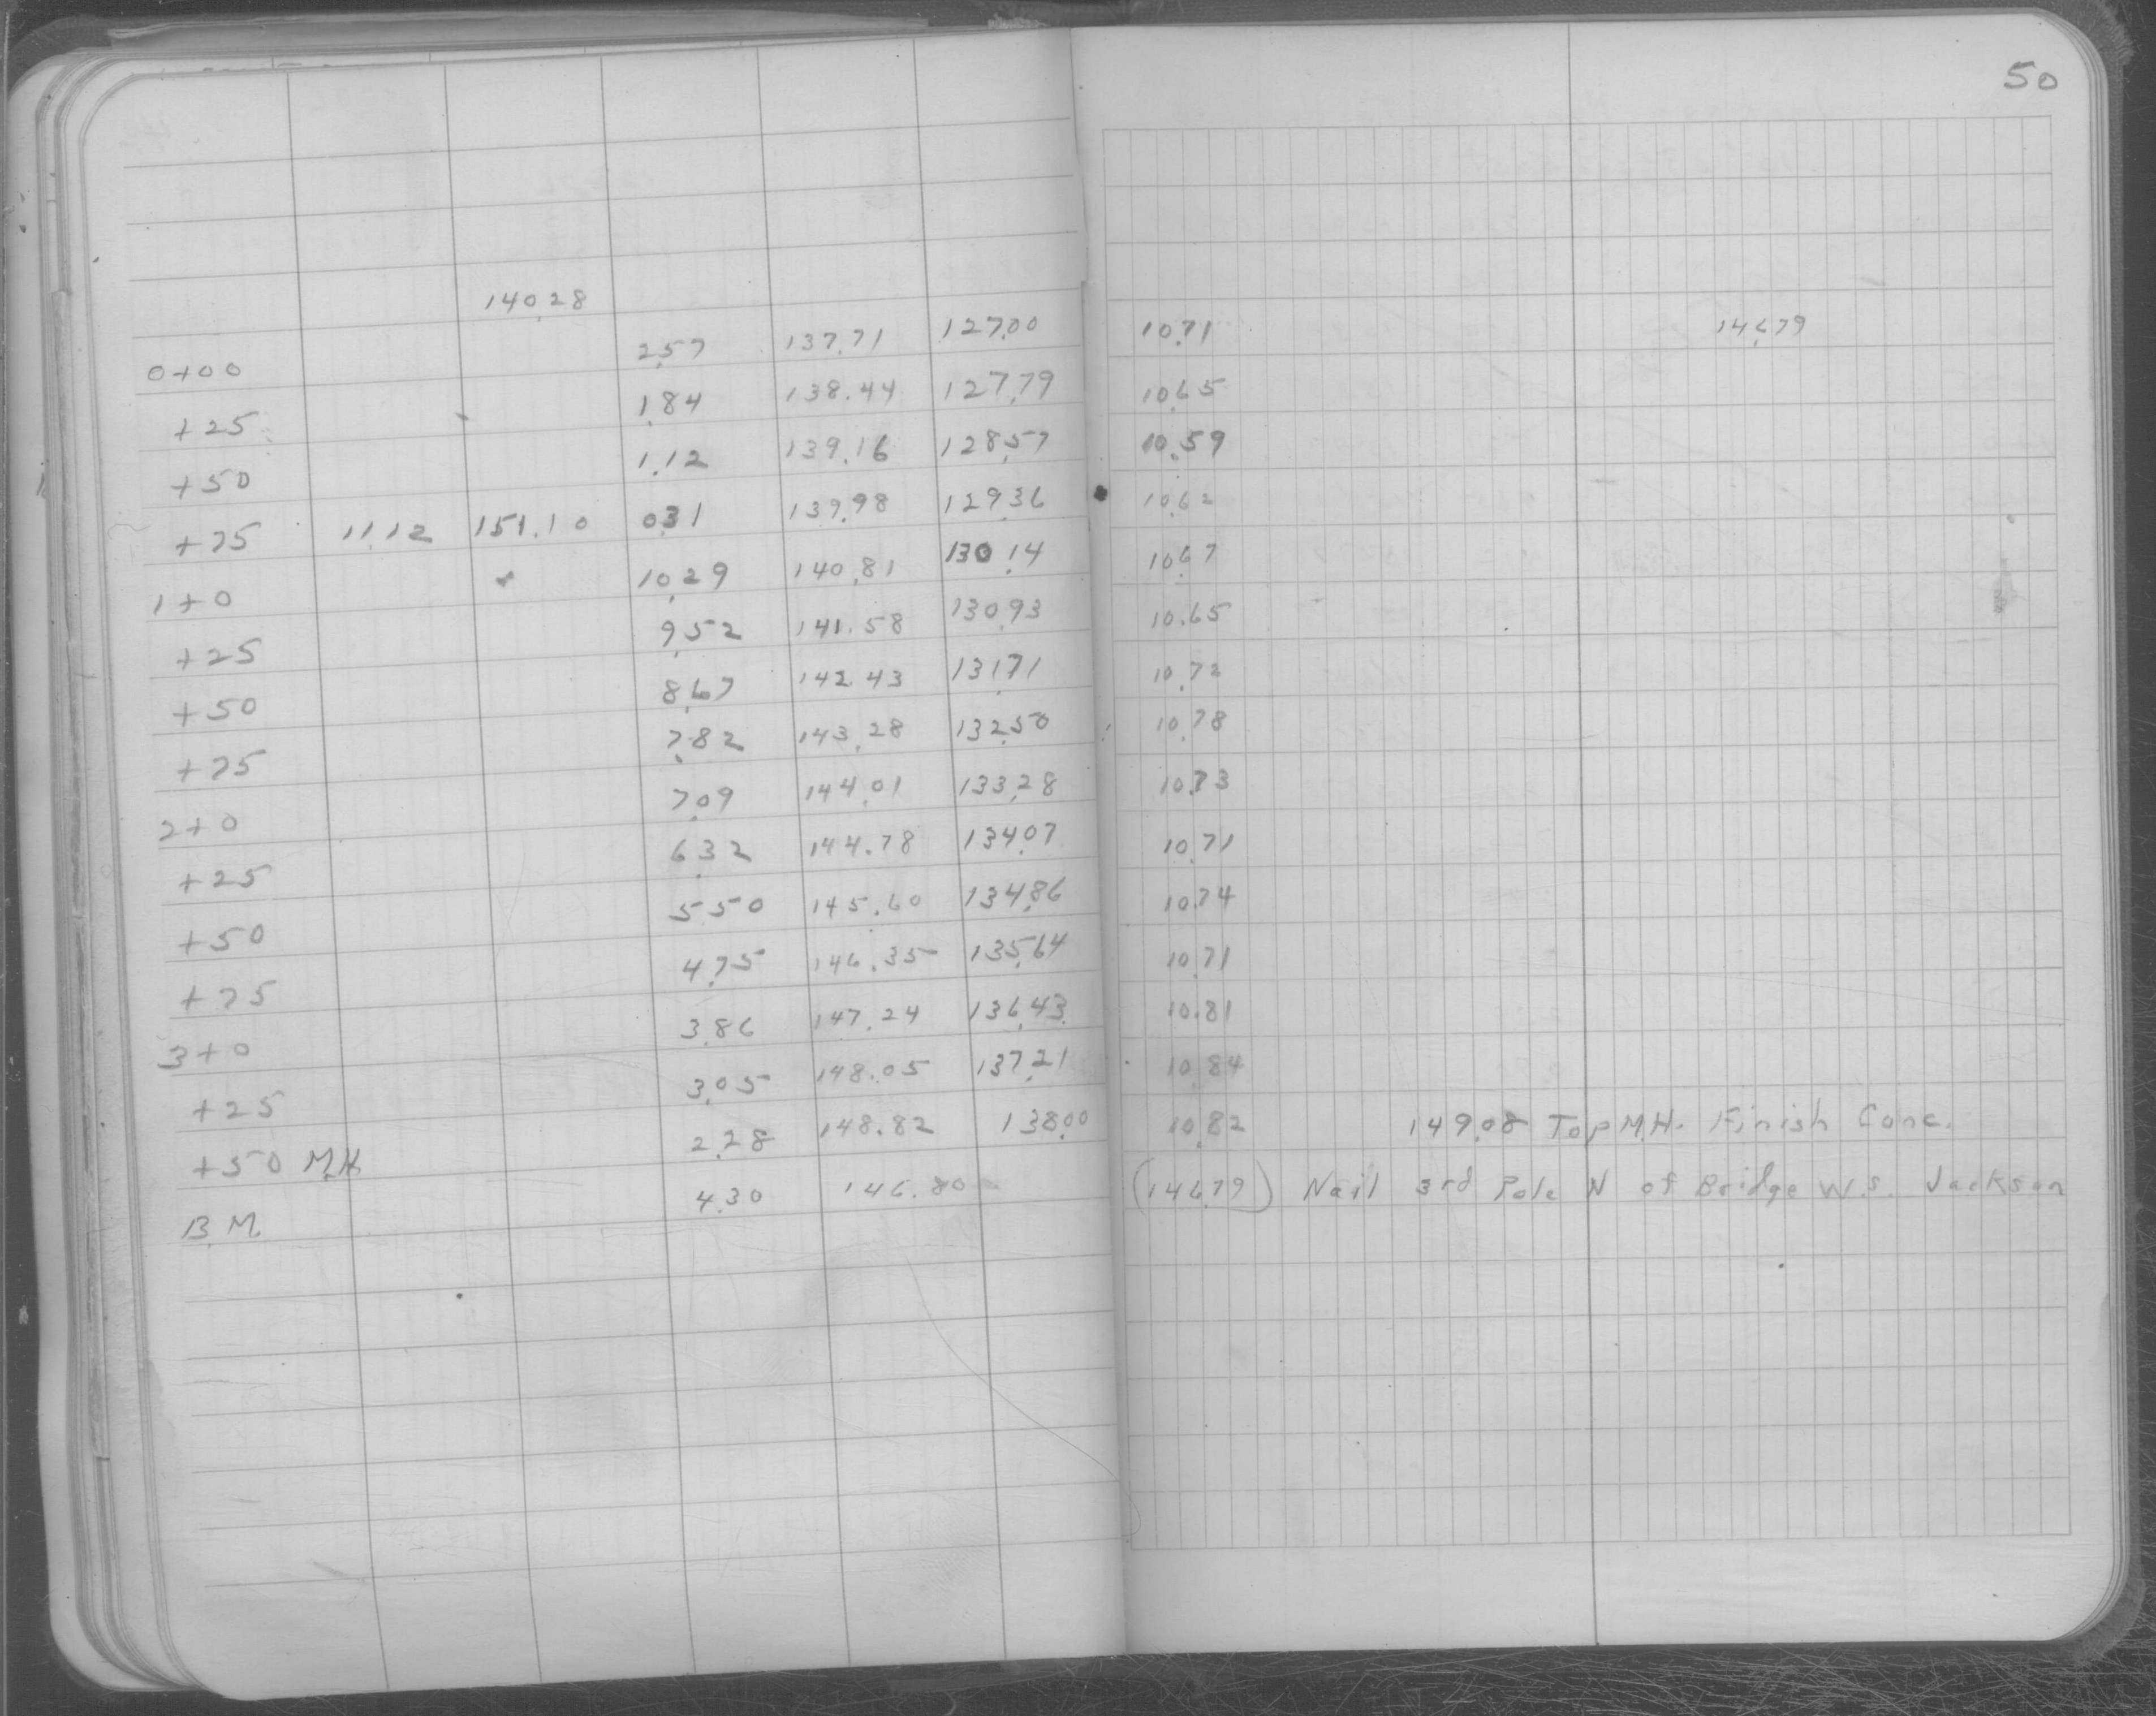 50
140.28
0+00 2.57 137.71 127.00 10.71 146.79
+25 1.84 138.44 127.79 10.65
+50 1.12 139.16 128.57 10.59
+75 11.12 151.10 0.31 139.98 129.36 10.62
1+0 10.29 140.81 130.14 10.67
+25 9.52 141.58 130.93 10.65
+50 8.67 142.43 131.71 10.72
+75 7.82 143.28 132.50 10.78
2+0 7.09 144.01 133.28 10.73
+25 6.32 144.78 134.07 10.71
+50 5.50 145.60 134.86 10.74
+75 4.75 146.35 135.64 10.71
3+0 3.86 147.24 136.43 10.81
+25 3.05 148.05 137.21 10.84
+50 M.H. 2.28 148.82 138.00 10.82 149.08 Top M.H. Finish Conc.
B.M. 4.30 146.80 (146.79) Nail 3rd Pole N of Bridge W.S. Jackson